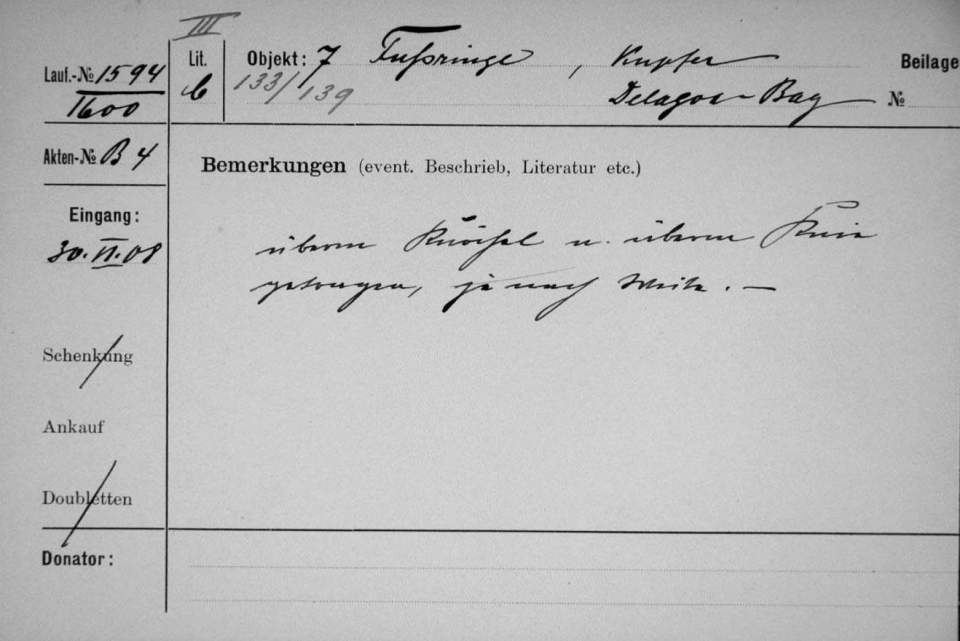 III
Lauf.-№ 1594
1600
Lit.
b
Objekt: 7 Fußringe, Kupfer
133/139
Delagoa-Bay
Beilage
№
Akten-№ B 4
Bemerkungen (event. Beschrieb, Literatur etc.)
Eingang:
30. VI. 08
überm Knöchel u. überm Knie
getragen, je nach Weite. —
Schenkung
Ankauf
Doubletten
Donator: